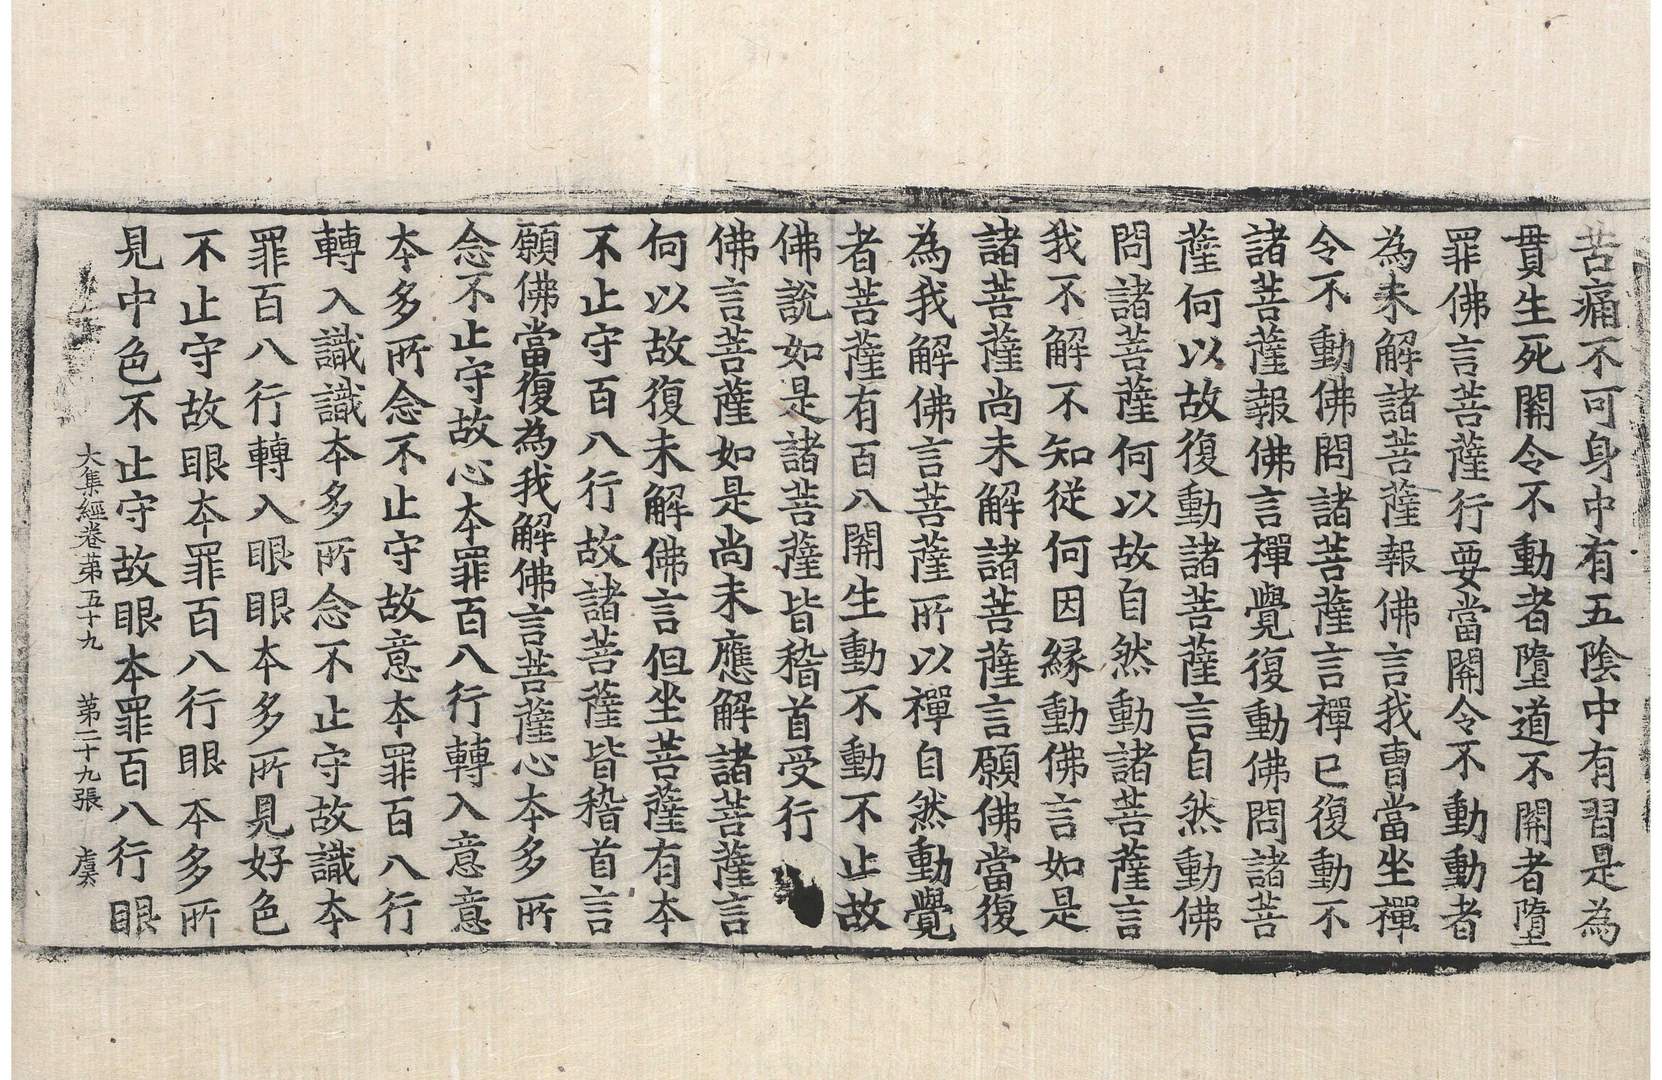 苦痛不可身中有五陰中有習是為
貫生死開令不動者墮道不開者墮
罪佛言菩薩行要當開令不動動者
為未解諸菩薩報佛言我曹當坐禪
令不動佛問諸菩薩言禪已復動不
諸菩薩報佛言禪覺復動佛問諸菩
薩何以故復動諸菩薩言自然動佛
問諸菩薩何以故自然動諸菩薩言
我不解不知從何因緣動佛言如是
諸菩薩尚未解諸菩薩言願佛當復
為我解佛言菩薩所以禪自然動覺
者菩薩有百八開生動不動不止故
佛說如是諸菩薩皆稽首受行
佛言菩薩如是尚未應解諸菩薩言
何以故復未解佛言但坐菩薩有本
不止守百八行故諸菩薩皆稽首言
願佛當復為我解佛言菩薩心本多所
念不止守故心本罪百八行轉入意意
本多所念不止守故意本罪百八行
轉入識識本多所念不止守故識本
罪百八行轉入眼眼本多所見好色
不止守故眼本罪百八行眼本多所
見中色不止守故眼本罪百八行眼
大集經卷第五十九 第二十九張 虞